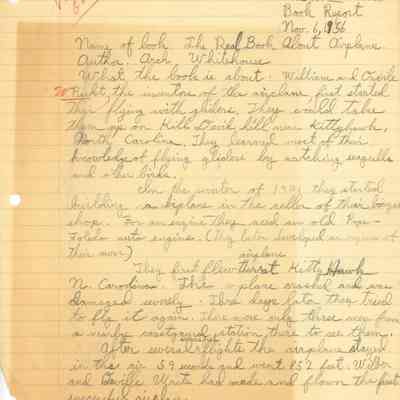 Book Report
Nov. 6, 1956
Name of book The Real Book About Airplane
Author. Arch Whitehouse
What the book is about: William and Orville
W Right, the inventors of the airplane first started
their flying with gliders. They would take
them up on Kill Devil hill near Kittyhawk,
North Carolina. They learned most of their
knowledge of flying gliders by watching seagulls
and other birds.
In the winter of 1901 they started
building a airplane in the celler of their
shop. For an engine they used an old Pope-
Toledo auto engine. (They later developed an engine of
their own)
airplane
They first flew the at Kitty Hawk
N. Carolina. The plane crashed and was
damaged severly. Three days later they tried
to fly it again. There were only three men from
a nearby coastguard station there to see them.
After several flights the airplane stayed
in the air 59 seconds and went 852 feet. Wilber
and Orville Write had made and flown the first
successful airplane.